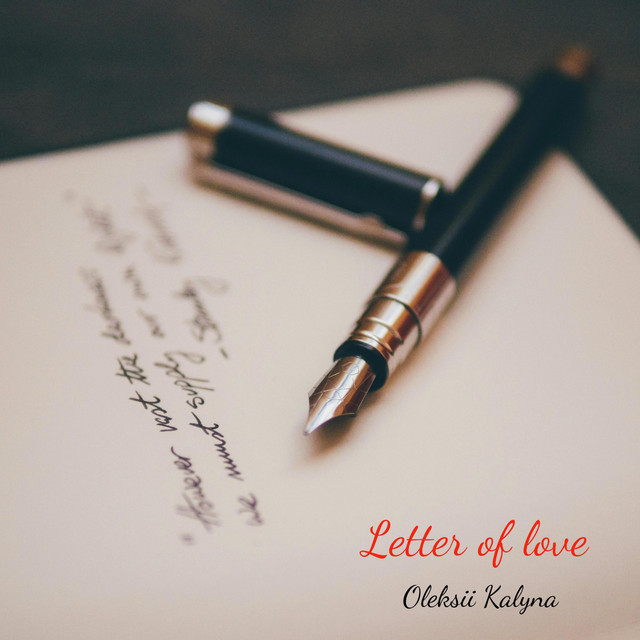 "However vast the darkness
we must supply our own light"
-Stanley Kubrick
Letter of love
Oleksii Kalyna